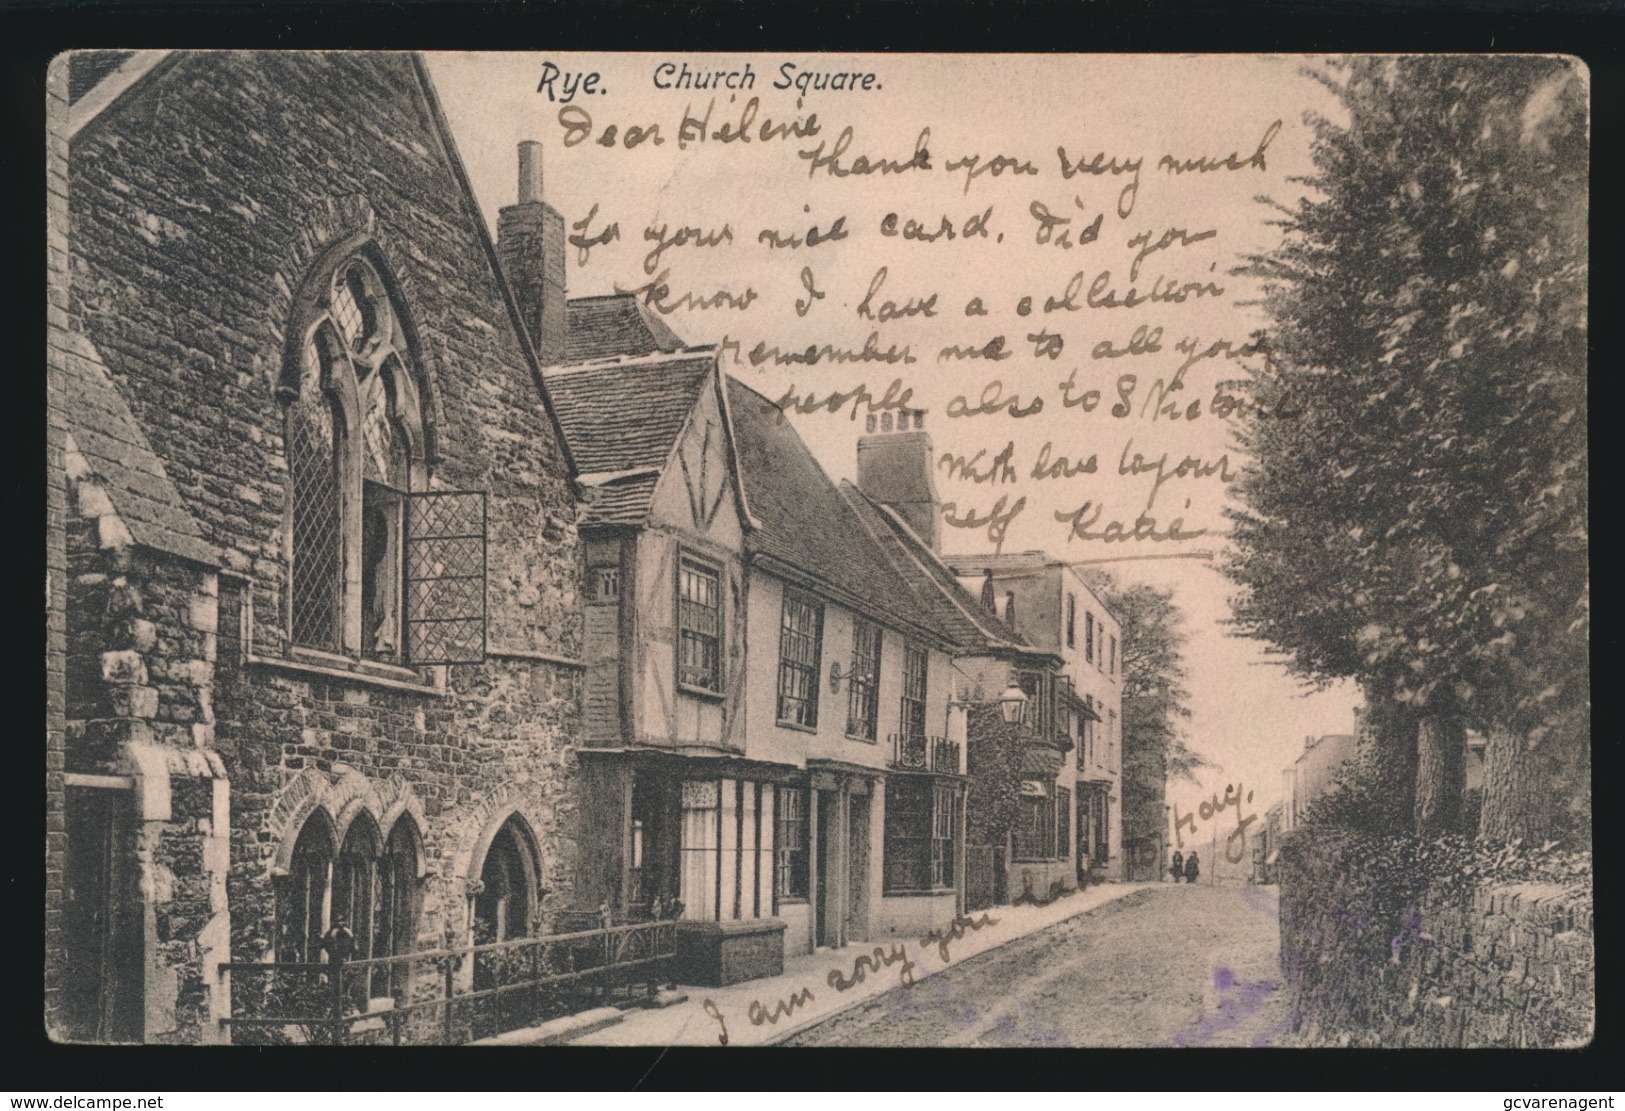 Rye. Church Square.
Dear Hélène
thank you very much
for your nice card. Did you
know I have a collection
remember me to all your
people also to S Victoire
With love to your
self Katie
I am sorry you
www.delcampe.net
gcvarenagent